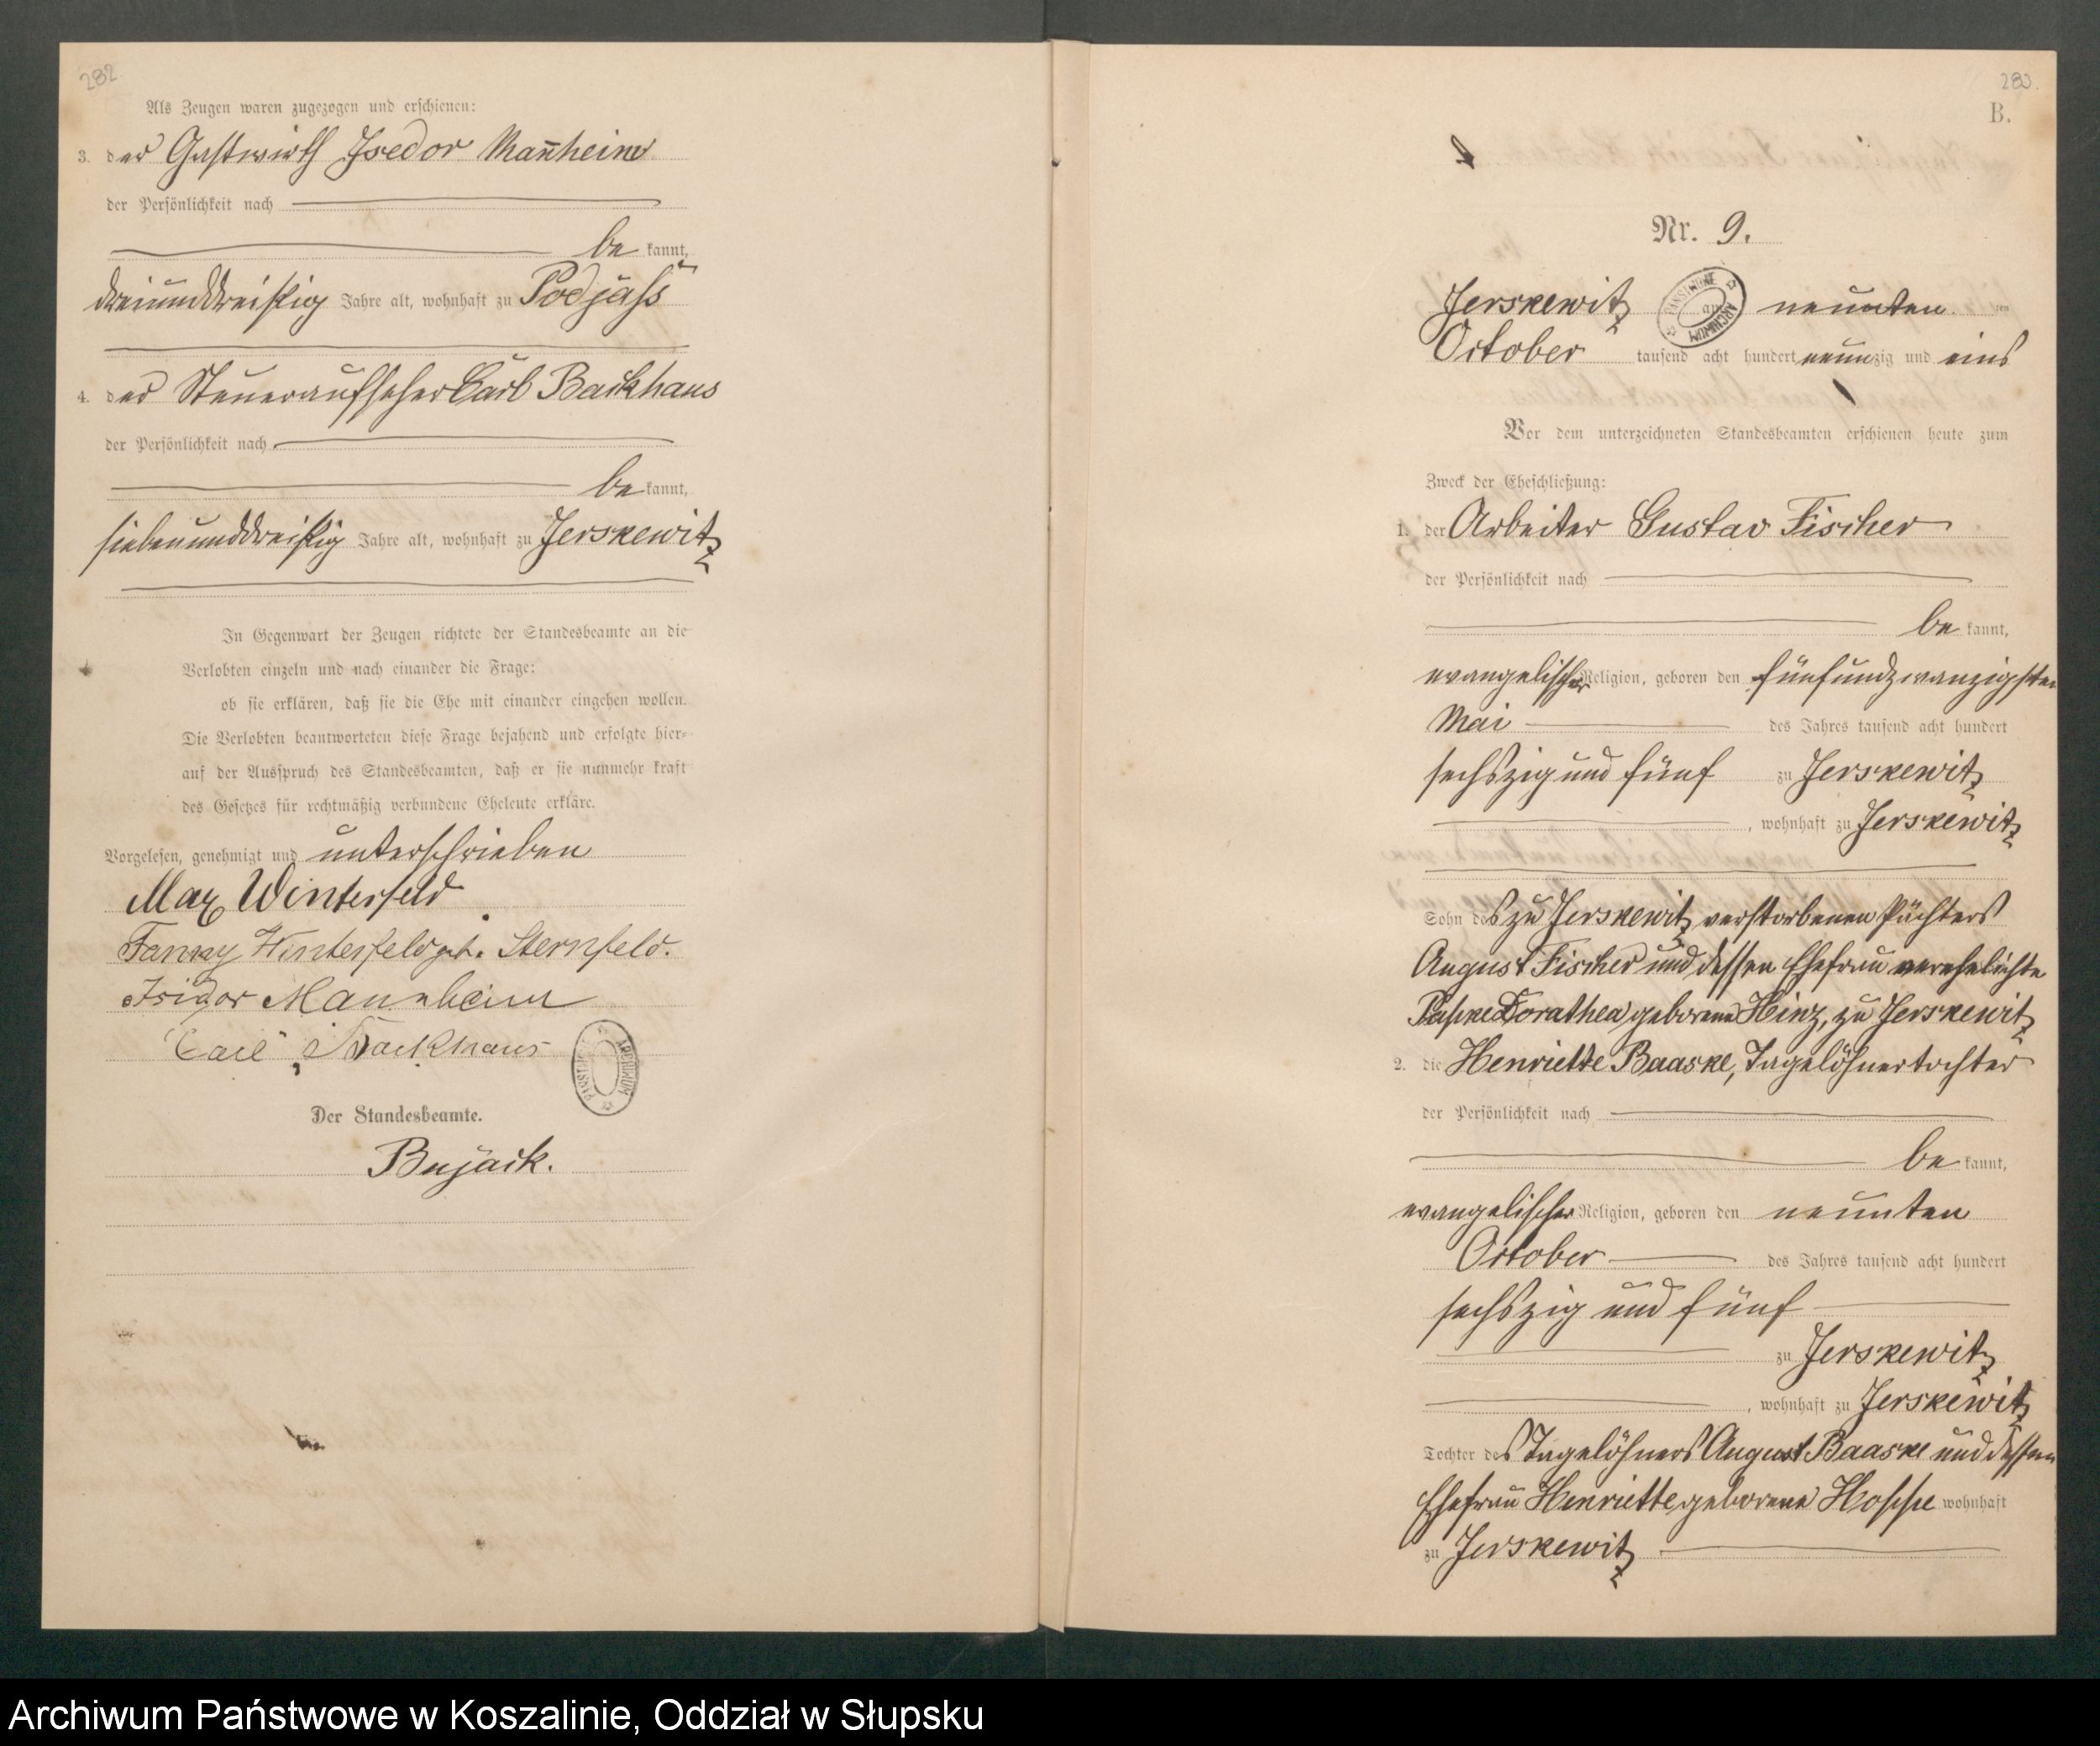 282
Als Zeugen waren zugezogen und erschienen:
3. der Gastwirth Isedor Man̄heim
der Persönlichkeit nach
be kannt,
dreiunddreißig Jahre alt, wohnhaft zu Podjass
4. der Steueraufseher Carl Backhaus
der Persönlichkeit nach
be kannt,
siebenunddreißig Jahre alt, wohnhaft zu Jerskewitz
In Gegenwart der Zeugen richtete der Standesbeamte an die
Verlobten einzeln und nach einander die Frage:
ob sie erklären, daß sie die Ehe mit einander eingehen wollen.
Die Verlobten beantworteten diese Frage bejahend und erfolgte hier-
auf der Ausspruch des Standesbeamten, daß er sie nunmehr kraft
des Gesetzes für rechtmäßig verbundene Eheleute erkläre.
Vorgelesen, genehmigt und unterschrieben
Max Winterfeld
Fanny Winterfeld geb. Sternfeld.
Isidor Mannheim
Carl Backhaus
ARCHIWUM PAŃSTWOWE
Der Standesbeamte.
Bujack.
283.
B.
Nr. 9.
Jerskewitz neunten ten
ARCHIWUM PAŃSTWOWE
October tausend acht hundert neunzig und eins
Vor dem unterzeichneten Standesbeamten erschienen heute zum
Zweck der Eheschließung:
1. der Arbeiter Gustav Fischer
der Persönlichkeit nach
be kannt,
evangelischer Religion, geboren den fünfundzwanzigsten
Mai des Jahres tausend acht hundert
sechszig und fünf zu Jerskewitz
, wohnhaft zu Jerskewitz
Sohn des zu Jerskewitz verstorbenen Pächters
August Fischer und dessen Ehefrau verehelichte
Dorathea geborene Hinz, zu Jerskewitz
2. die Henriette Baaske, Tagelöhnertochter
der Persönlichkeit nach
be kannt,
evangelischer Religion, geboren den neunten
October des Jahres tausend acht hundert
sechszig und fünf
zu Jerskewitz
, wohnhaft zu Jerskewitz
Tochter des Tagelöhners August Baaske und dessen
Ehefrau Henriette geborene Hoppe wohnhaft
zu Jerskewitz
Archiwum Państwowe w Koszalinie, Oddział w Słupsku